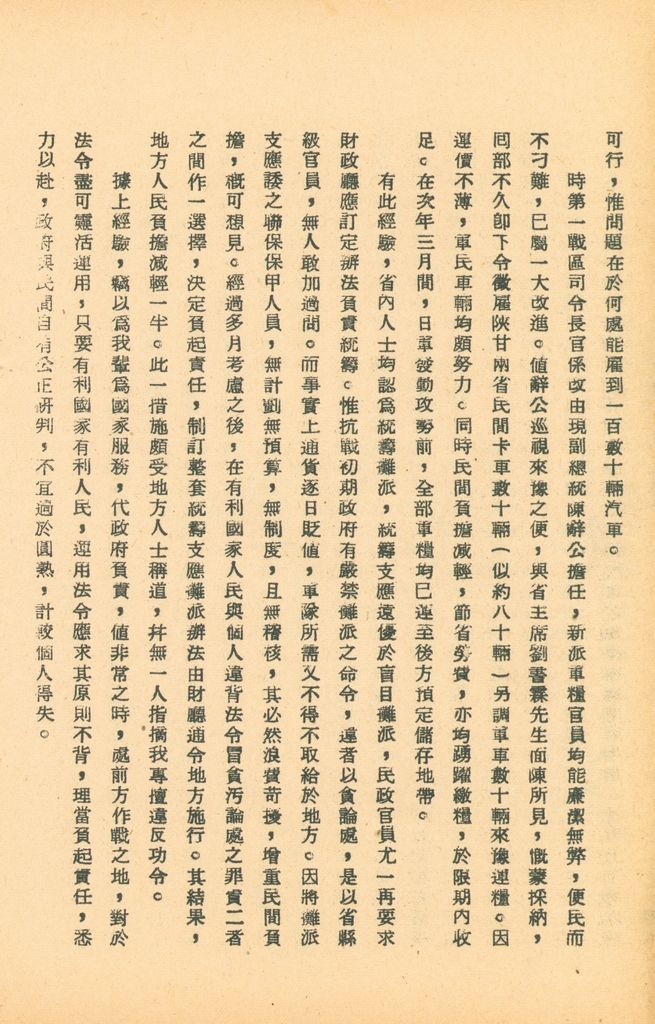 可行，惟問題在於何處能雇到一百數十輛汽車。
時第一戰區司令長官係改由現副總統陳辭公擔任，新派軍糧官員均能廉潔無弊，便民而
不刁難，已屬一大改進。值辭公巡視來豫之便，與省主席劉書霖先生面陳所見，慨蒙採納，
囘部不久卽下令徵雇陝甘兩省民間卡車數十輛（似約八十輛）另調軍車數十輛來豫運糧。因
運價不薄，軍民車輛均頗努力。同時民間負擔減輕，節省勞費，亦均踴躍繳糧，於限期內收
足。在次年三月間，日軍發動攻勢前，全部軍糧均已運至後方預定儲存地帶。
有此經驗，省內人士均認爲統籌攤派，統籌支應遠優於盲目攤派，民政官員尤一再要求
財政廳應訂定辦法負責統籌。惟抗戰初期政府有嚴禁攤派之命令，違者以貪論處，是以省縣
級官員，無人敢加過問。而事實上通貨逐日貶値，軍隊所需又不得不取給於地方。因將攤派
支應諉之聯保保甲人員，無計劃無預算，無制度，且無稽核，其必然浪費苛擾，增重民間負
擔，槪可想見。經過多月考慮之後，在有利國家人民與個人違背法令冒貪污論處之罪責二者
之間作一選擇，決定負起責任，制訂整套統籌支應攤派辦法由財廳通令地方施行。其結果，
地方人民負擔減輕一半。此一措施頗受地方人士稱道，幷無一人指摘我專擅違反功令。
據上經驗，竊以爲我輩爲國家服務，代政府負責，值非常之時，處前方作戰之地，對於
法令盡可靈活運用，只要有利國家有利人民，運用法令應求其原則不背，理當負起責任，悉
力以赴，政府與民間自有公正評判，不宜過於圓熟，計較個人得失。